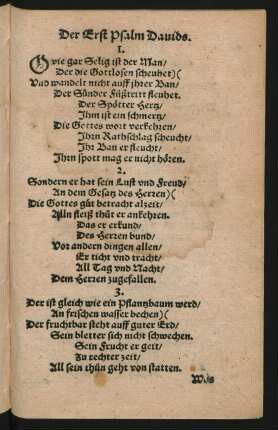 Der Erst Psalm Dauids.
1.
O wie gar Selig ist der Man/
Der die Gottlosen scheuhet)(
Vnd wandelt nicht auff jhrer Ban/
Der Sünder Fůßtritt fleuhet.
Der Spötter Hertz/
Ihm ist ein schmertz/
Die Gottes wort verkehren/
Ihrn Rathschlag scheucht/
Ihr Ban er fleucht/
Ihrn spott mag er nicht hören.
2.
Sondern er hat sein Lust vnd Freud/
An dem Gesatz des Herren)(
Die Gottes gůt betracht alzeit/
Alln fleiß thůt er ankehren.
Das er erkund/
Des Herren bund/
Vor andern dingen allen/
Er ticht vnd tracht/
All Tag vnd Nacht/
Dem Herren zugefallen.
3.
Der ist gleich wie ein Pflantzbaum werd/
An frischen wasser bechen)(
Der fruchtbar steht auff guter Erd/
Sein bletter sich nicht schwechen.
Sein Frucht er geit/
Zu rechter zeit/
All sein thůn geht von statten.